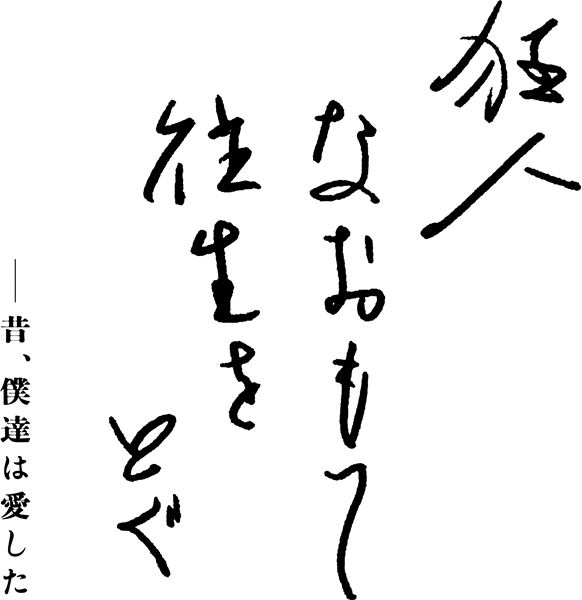 狂人
なおもて
往生を
とぐ
―昔、僕達は愛した